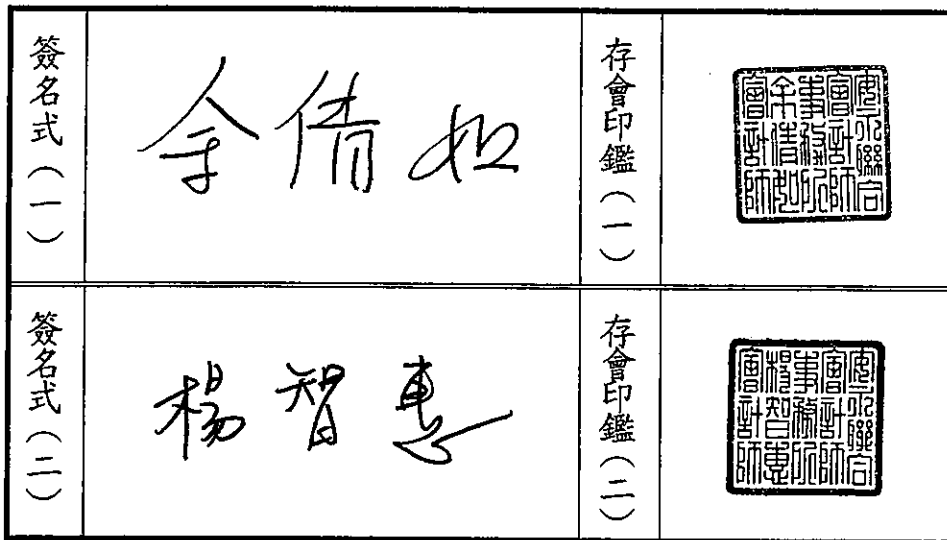 簽名式（一）
余倩如
存會印鑑（一）
安永聯合
會計師
事務所
余倩如
會計師
簽名式（二）
楊智惠
存會印鑑（二）
安永聯合
會計師
事務所
楊智惠
會計師